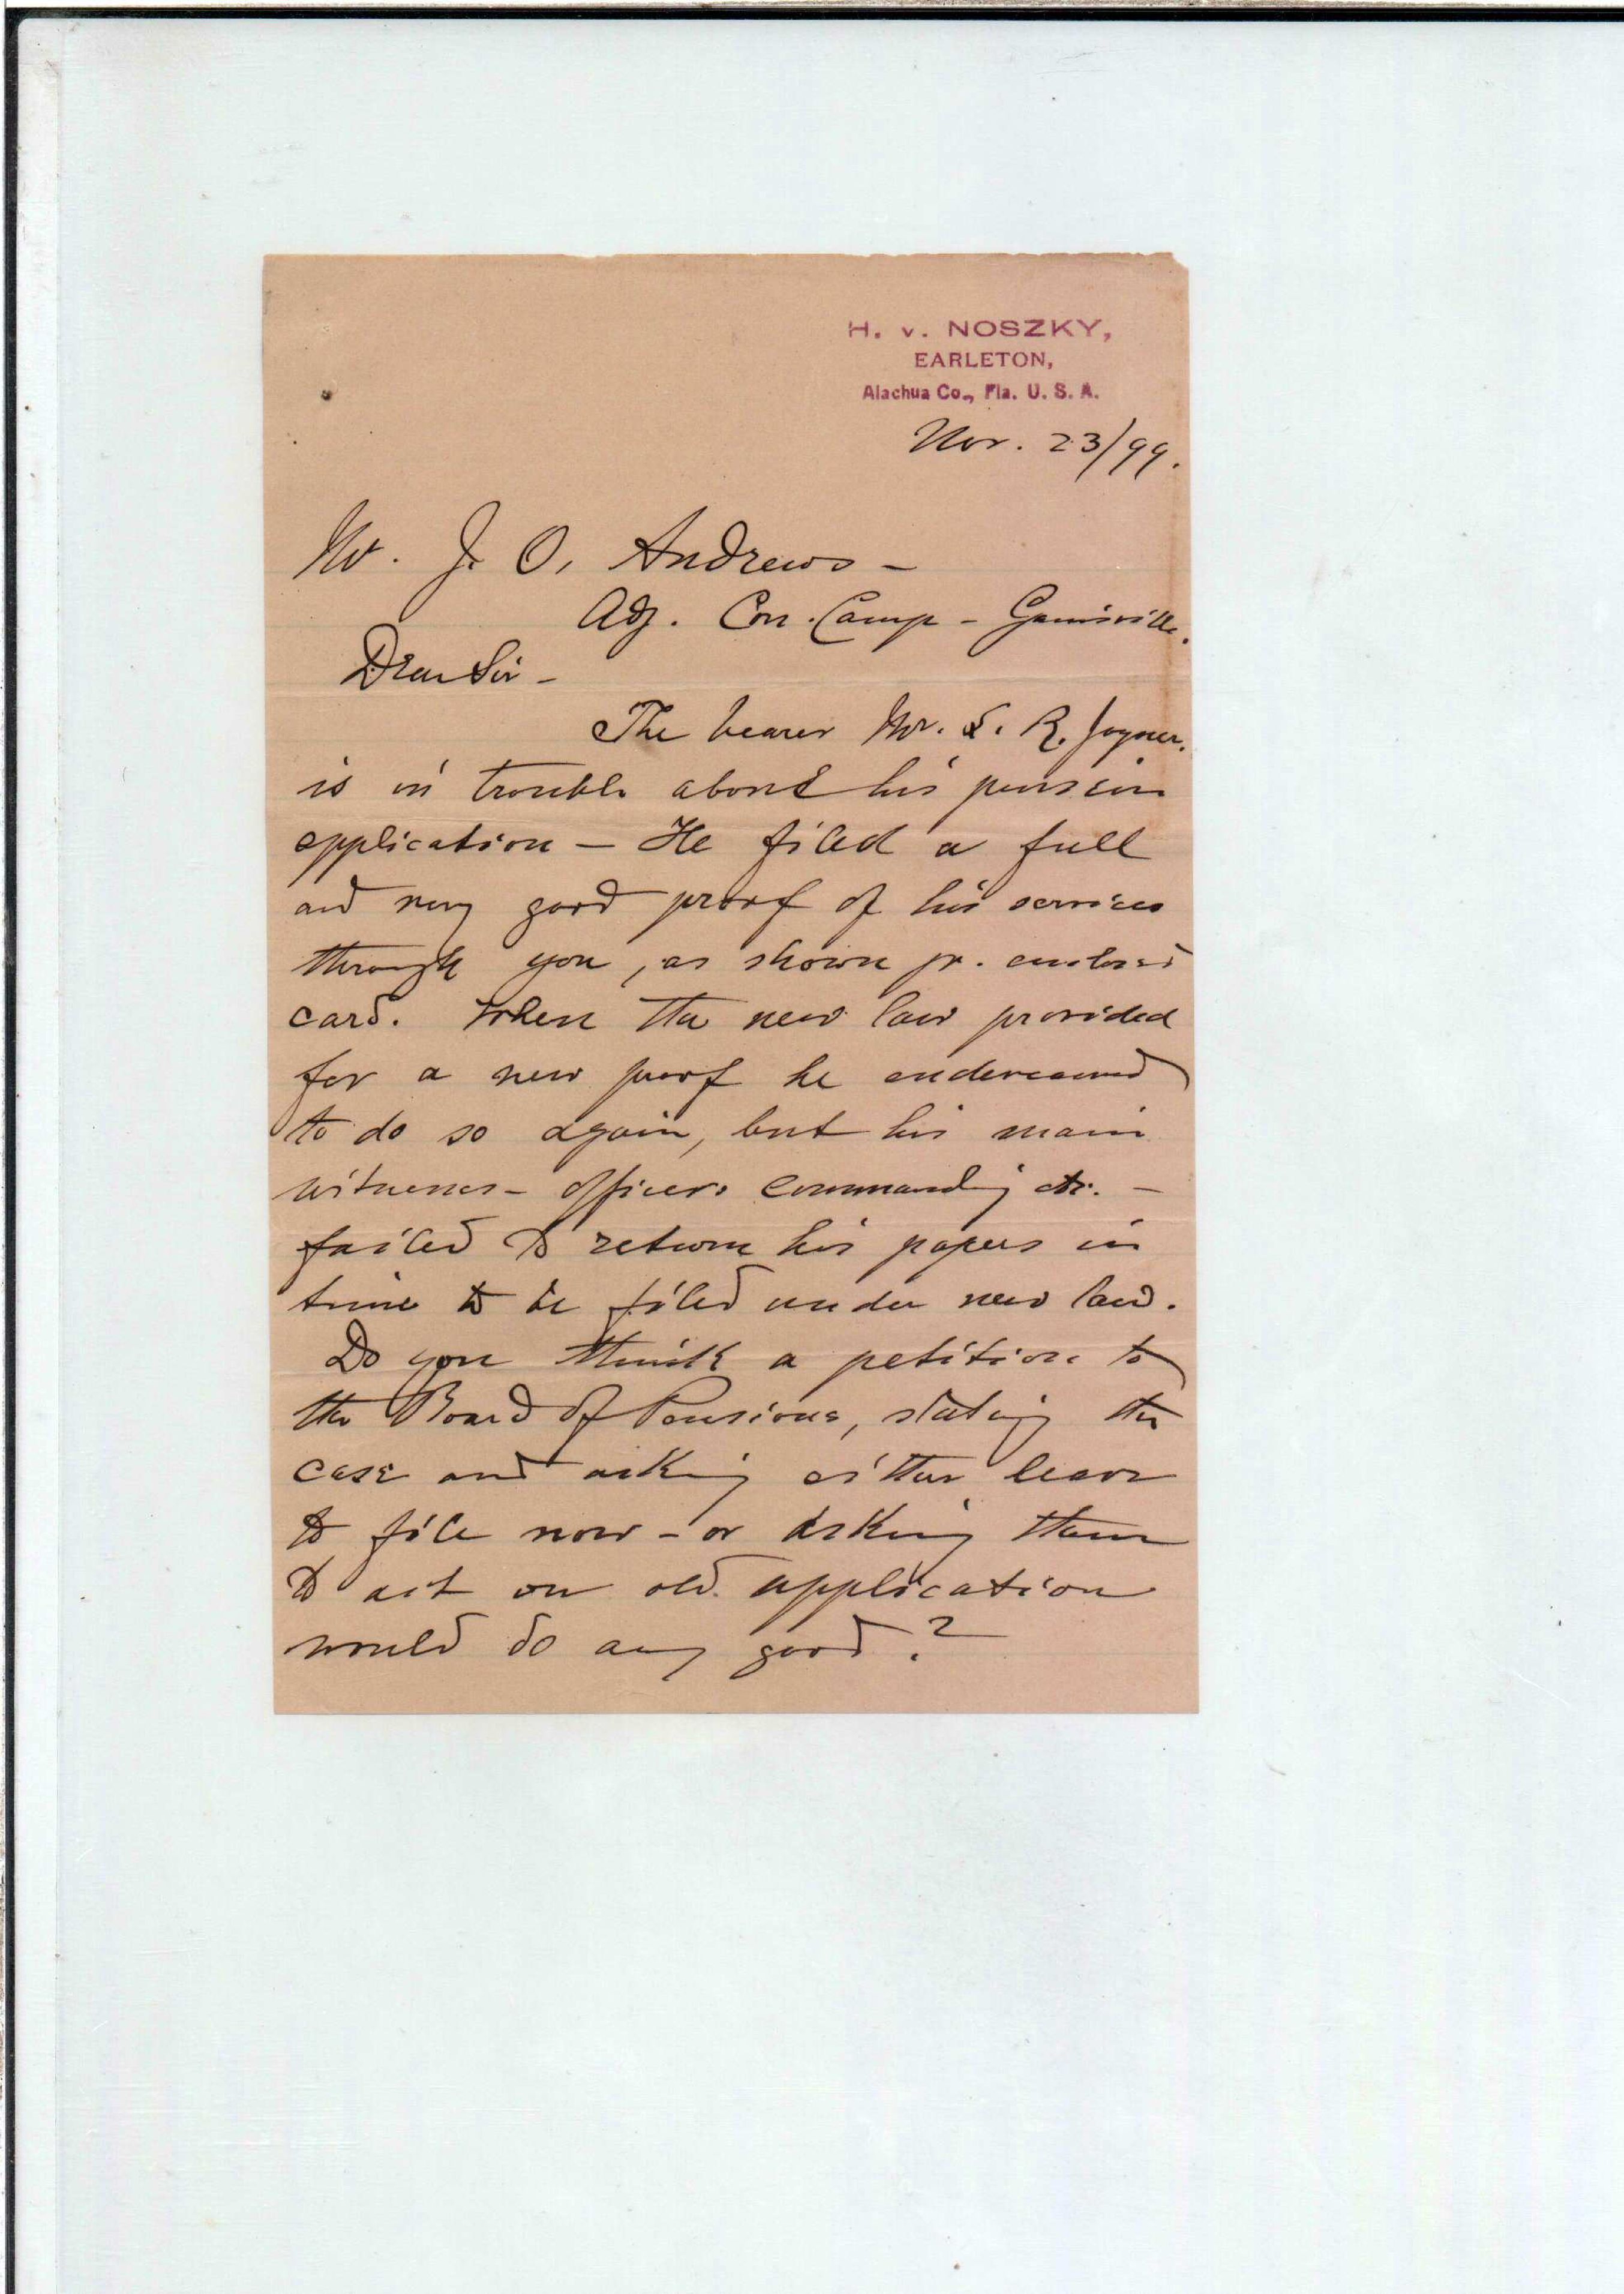 H. v. NOSZKY,
EARLETON,
Alachua Co., Fla. U. S. A.
Nov. 23/99.
Mr. J. O. Andrews -
Adj. Con. Camp - Gainsville.
Dear Sir -
The bearer Mr. S. R. Joyner.
is in trouble about his pension
application - He filed a full
and very good proof of his services
through you, as shown pr. enclosed
card. When the new law provided
for a new proof he endeavored
to do so again, but his main
witnesses - officers commanding etc. -
failed to return his papers in
time to be filed under new law.
Do you think a petition to
the Board of Pensions, stating the
case and asking either leave
to file now - or asking them
to act on old application
would do any good?